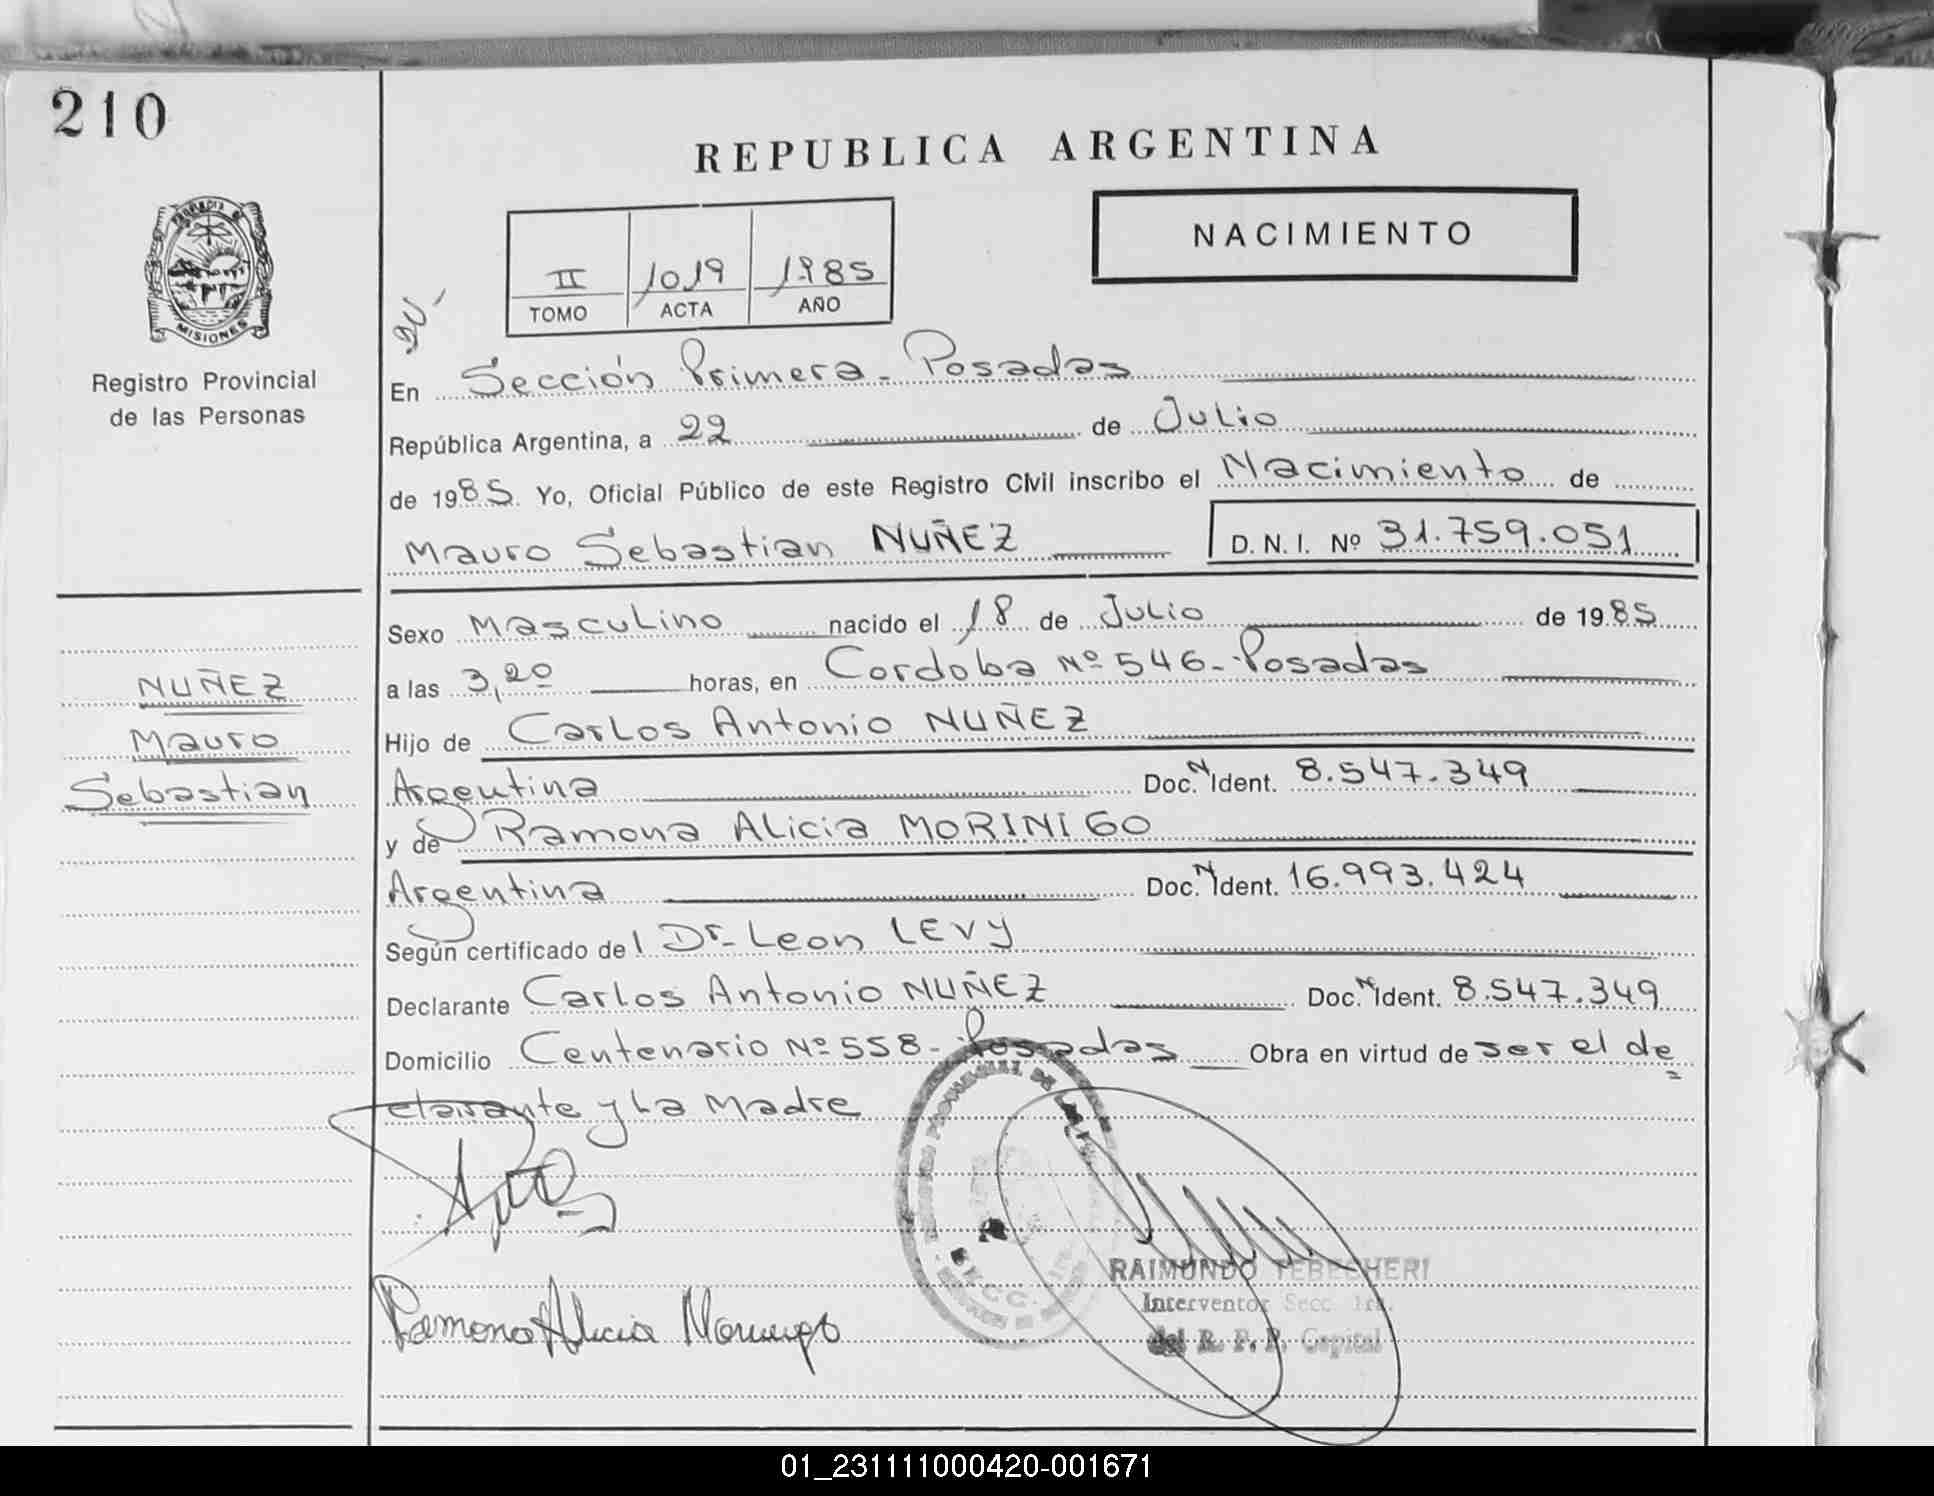 210
REPUBLICA ARGENTINA
NACIMIENTO
II 1019 1985
TOMO ACTA AÑO
MISIONES
Registro Provincial
de las Personas
En Sección Primera - Posadas
República Argentina, a 22 de Julio
de 1985. Yo, Oficial Público de este Registro Civil inscribo el Nacimiento de
Mauro Sebastian NUÑEZ D. N. I. Nº 31.759.051
Sexo Masculino nacido el 18 de Julio de 1985
a las 3,20 horas, en Cordoba Nº 546 - Posadas
Hijo de Carlos Antonio NUÑEZ
Argentina Doc. N Ident. 8.547.349
y de Ramona Alicia MORINIGO
Argentina Doc. N Ident. 16.993.424
Según certificado del Dr. Leon LEVY
Declarante Carlos Antonio NUÑEZ Doc. N Ident. 8.547.349
Domicilio Centenario Nº 558 - Posadas Obra en virtud de ser el de=
clarante y La Madre
NUÑEZ
Mauro
Sebastian
Ramona Alicia Morinigo
RAIMUNDO TEBECHERI
Interventor Secc. 1ra.
del R. P. P. Capital
01_231111000420-001671